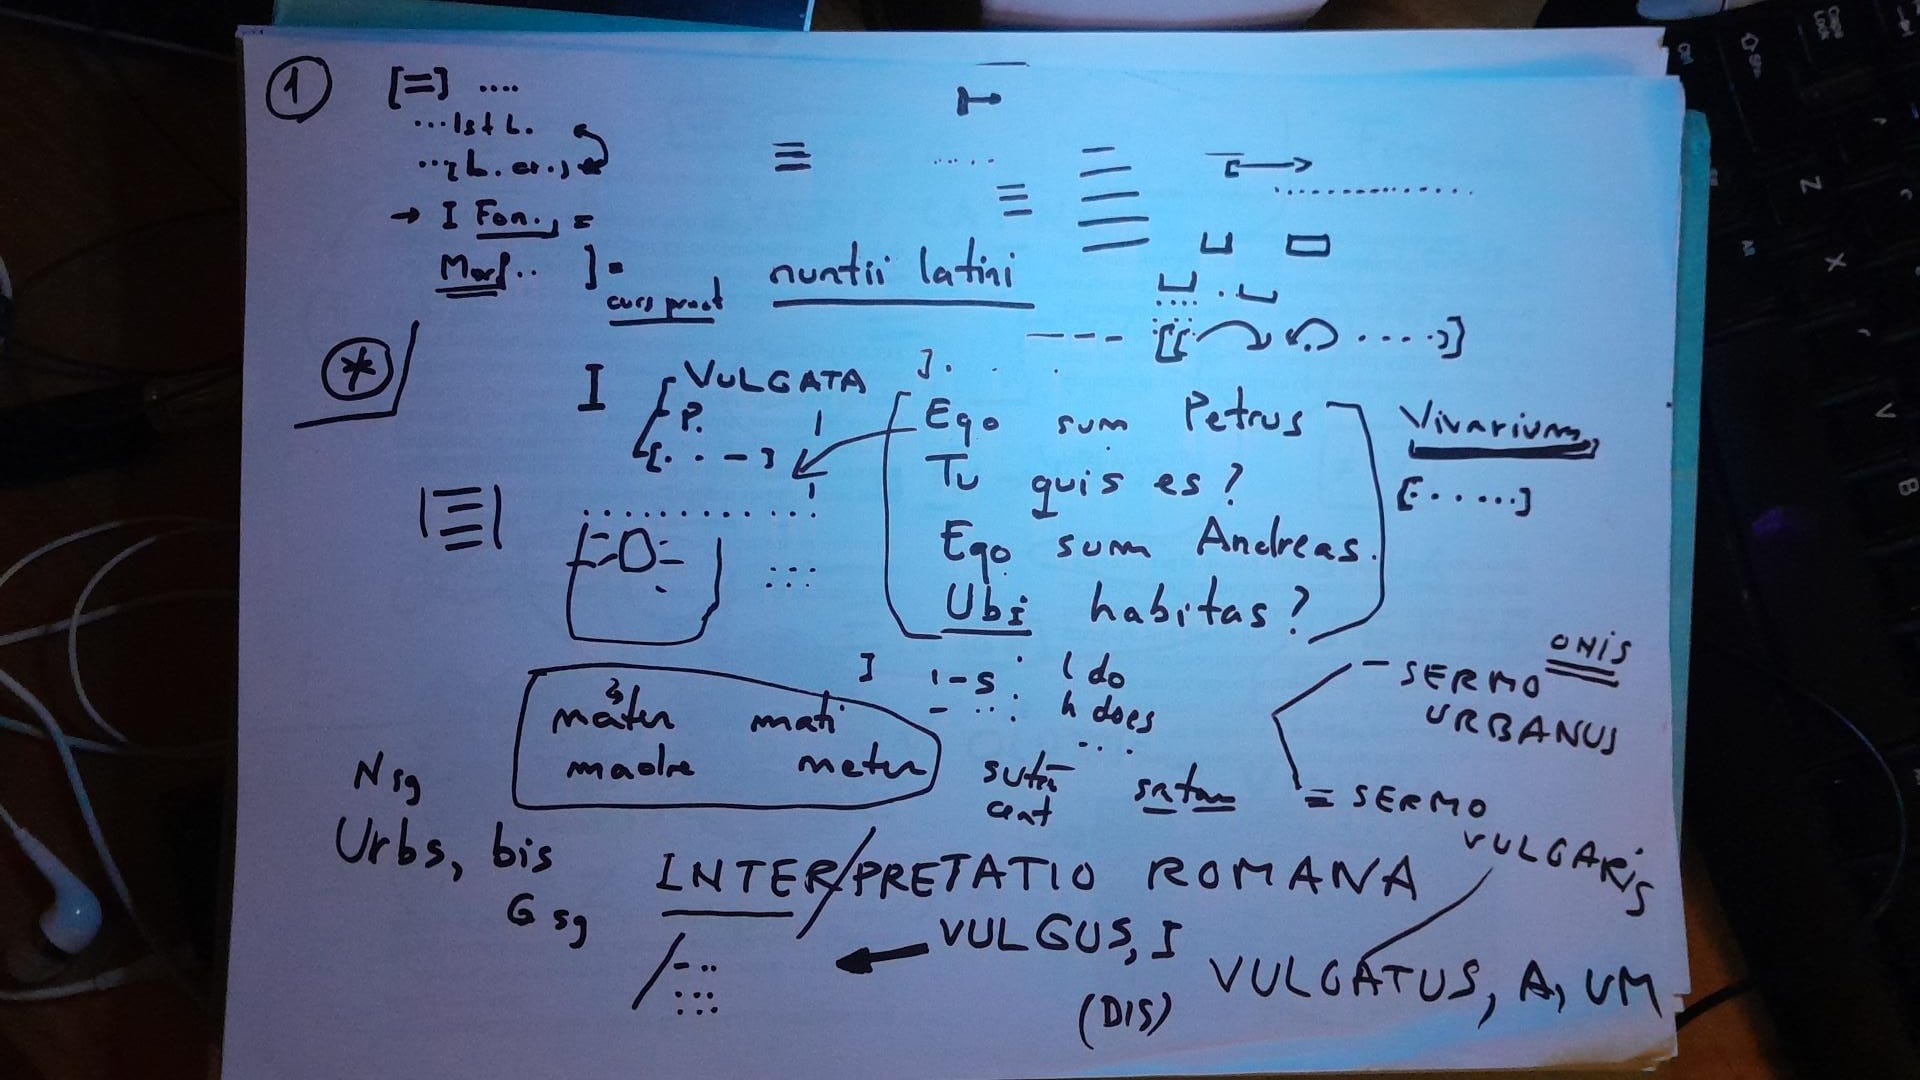 1
... Ist L.
→ I Fon.,
Morf..
nuntii latini
*
I
VULGATA
P.
Ego sum Petrus
Tu quis es?
Ego sum Andreas.
Ubi habitas?
Vivarium,
ONIS
- SERMO
URBANUS
I do
h does
mater mati
madre meter
satam
= SERMO
VULGARIS
N sg
Urbs, bis
G sg
INTER/PRETATIO ROMANA
VULGUS, I
(DIS)
VULGATUS, A, UM